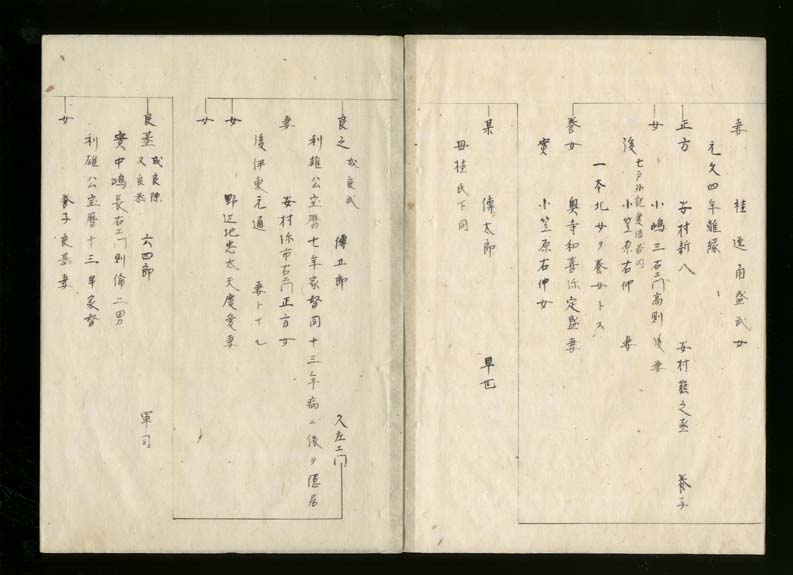 妻 桂 逸角盛武女
元文四年離縁
正方 安村新八 安村熊之丞 養子
女 小嶋三右エ門高則後妻
後 小笠原右仲 妻
一本北女ヲ養女トス
養女 奥寺和喜弥定盛妻
實 小笠原右仲女
某 傳太郎 早世
母桂氏下同
良之 或良武 傳五郎 久左エ門
利雄公宝暦七年家督同十三年病ニ依テ隠居
妻 安村弥市右エ門正方女
後伊東元通 妻トイヒ
女 野辺地忠太夫慶愛妻
女
良基 或良陳 又良恭 六四郎 軍司
實中嶋長右エ門則倫二男
利雄公宝暦十三年家督
女 養子良基妻